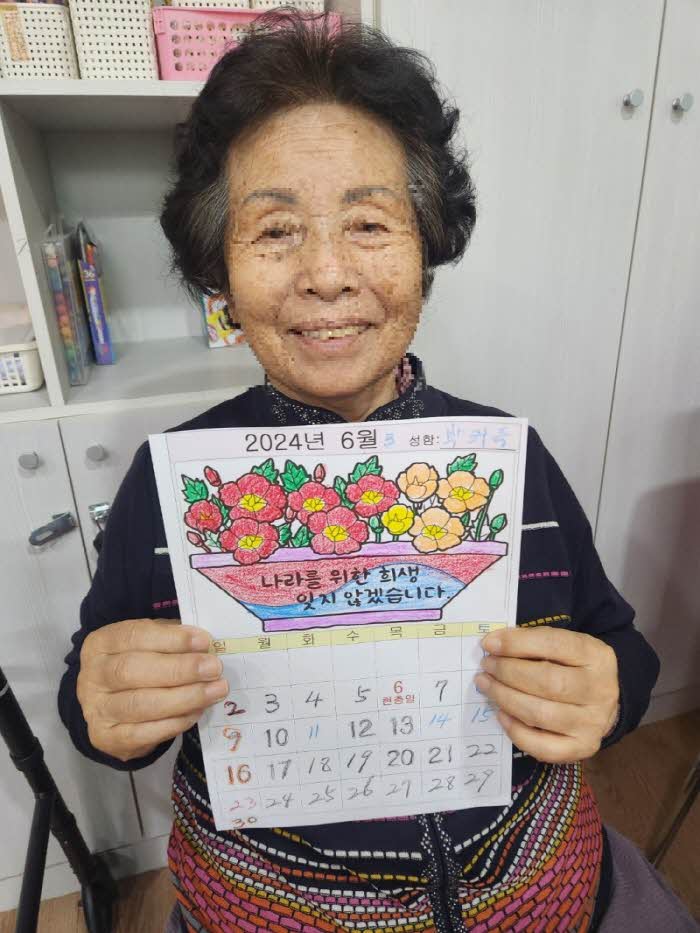 2024년 6월 성함: 박커측
나라를 위한 희생
잊지 않겠습니다.
일 월 화 수 목 금 토
2 3 4 5 6 7
현충일
9 10 11 12 13 14 15
16 17 18 19 20 21 22
23 24 25 26 27 28 29
30